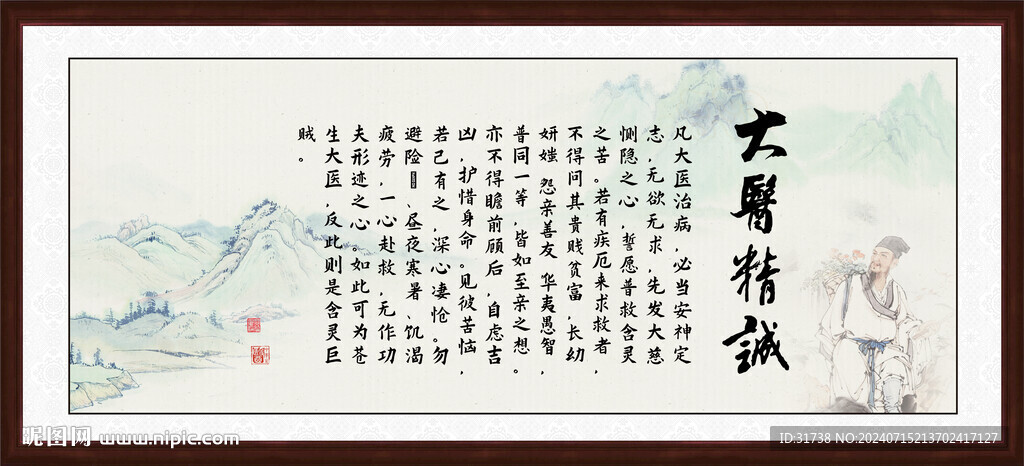 大醫精誠
凡大医治病，必当安神定
志，无欲无求，先发大慈
恻隐之心，誓愿普救含灵
之苦。若有疾厄来求救者，
不得问其贵贱贫富，长幼
妍媸 怨亲善友 华夷愚智，
普同一等，皆如至亲之想。
亦不得瞻前顾后，自虑吉
凶，护惜身命。见彼苦恼，
若己有之，深心凄怆。勿
避险 、昼夜寒暑、饥渴
疲劳，一心赴救，无作功
夫形迹之心。如此可为苍
生大医，反此则是含灵巨
贼。
昵图网 www.nipic.com
ID:31738 NO:20240715213702417127